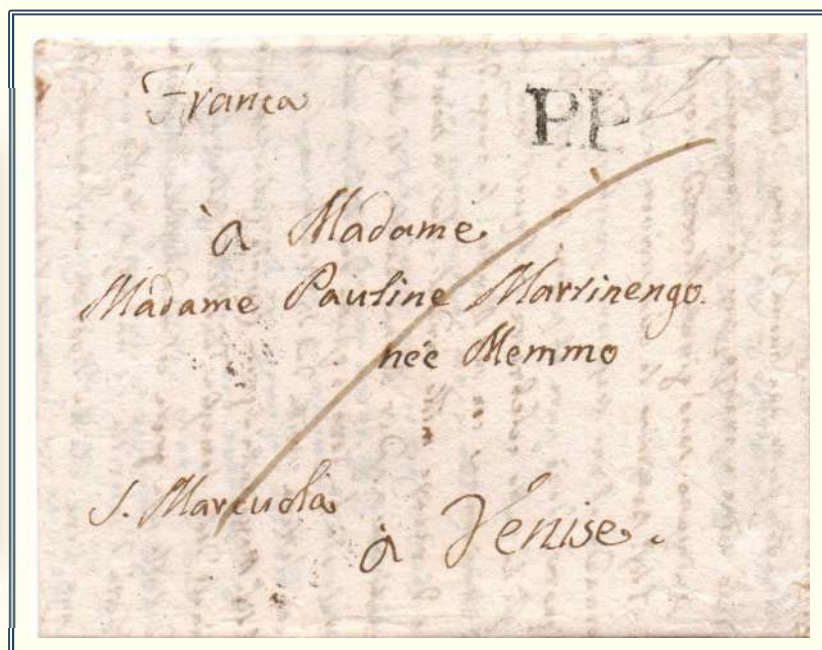 Franca
P.P.
à Madame
Madame Pauline Martinengo.
née Memmo
S. Marcuola
à Venise.